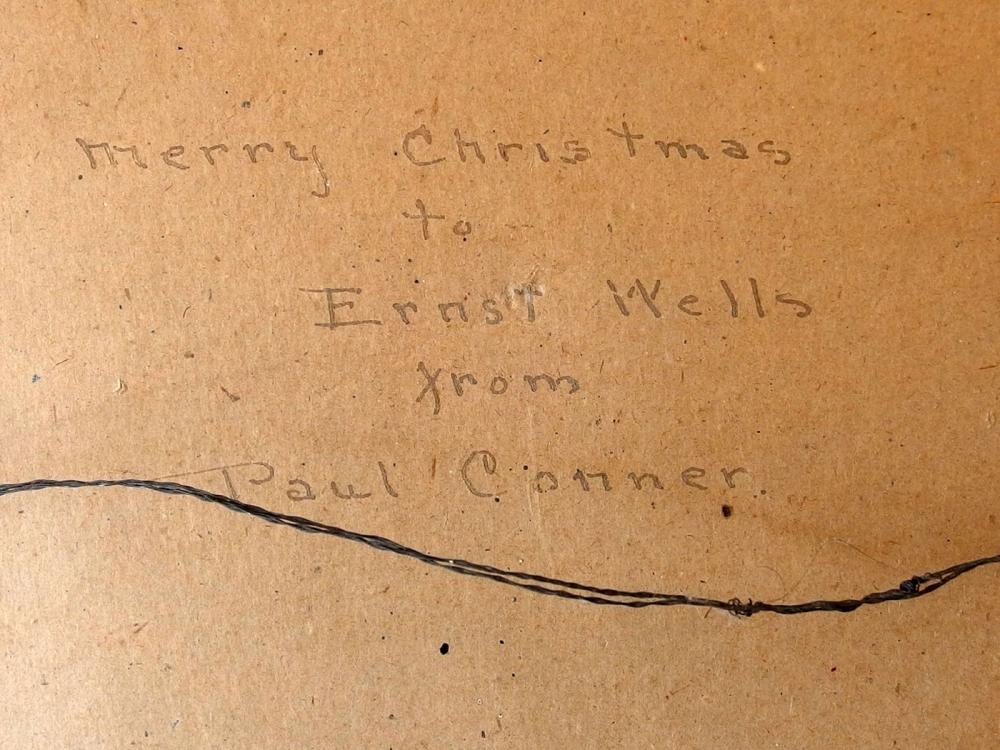 Merry Christmas
to
Ernst Wells
from
Paul Conner.